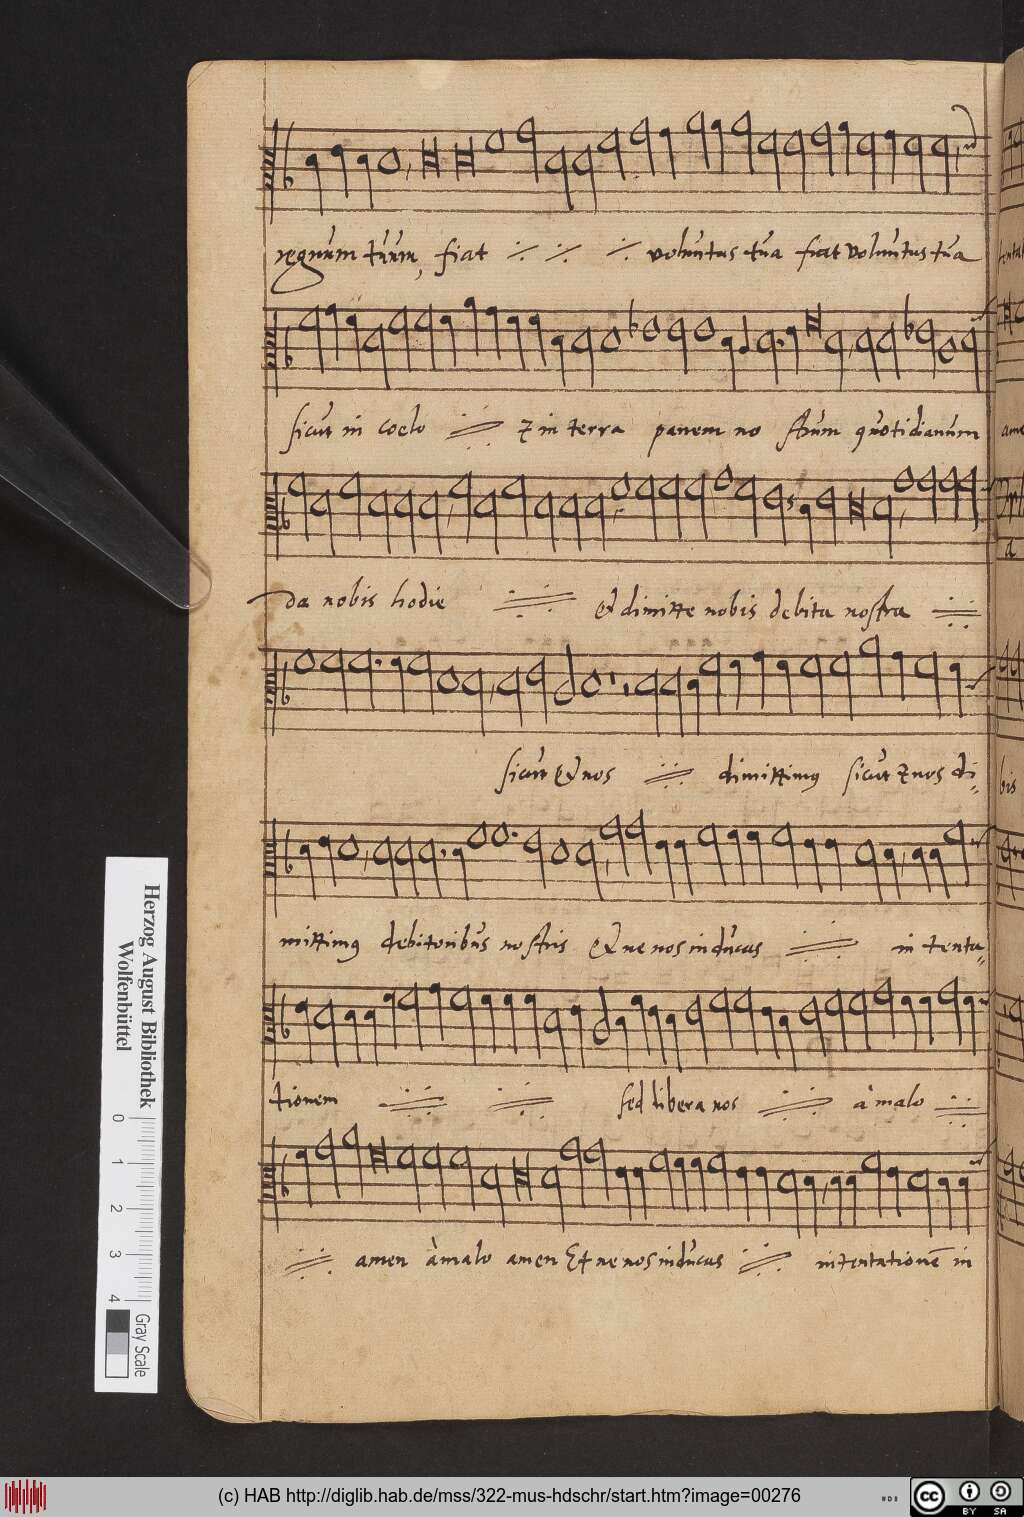 regnum tuum, fiat voluntus tua fiat voluntus tua
sicut in coelo z in terra panem no strum quotidianum
da nobis hodie et dimitte nobis debita nostra
sicut et nos dimittimus sicut z nos di-
mittimus debitoribus nostris et ne nos inducas in tenta-
tionem sed libera nos à malo
amen à malo amen Et ne nos inducas in tentationē in
Herzog August Bibliothek
Wolfenbüttel
0 1 2 3 4
Gray Scale
(c) HAB http://diglib.hab.de/mss/322-mus-hdschr/start.htm?image=00276
cc BY SA